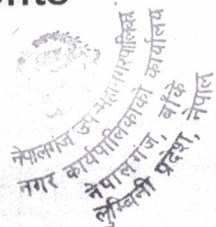 नेपालगंज उप-महानगरपालिका
नगर कार्यपालिकाको कार्यालय
नेपालगंज, बाँके
लुम्बिनी प्रदेश, नेपाल